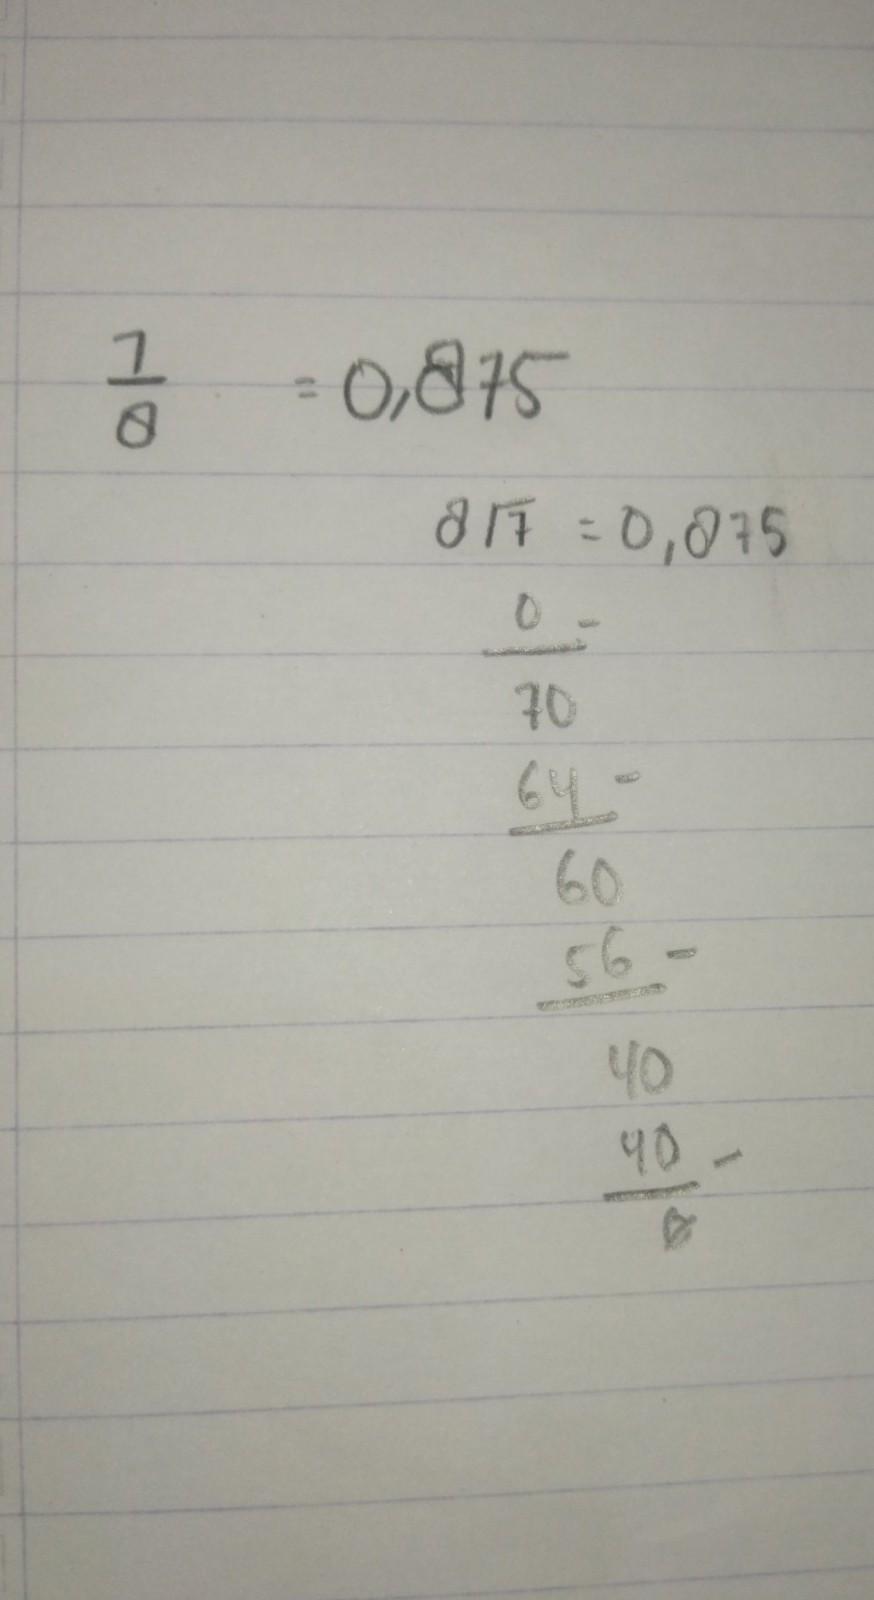 7/8 = 0,875
8√7 = 0,875
0 -
70
64 -
60
56 -
40
40 -
0